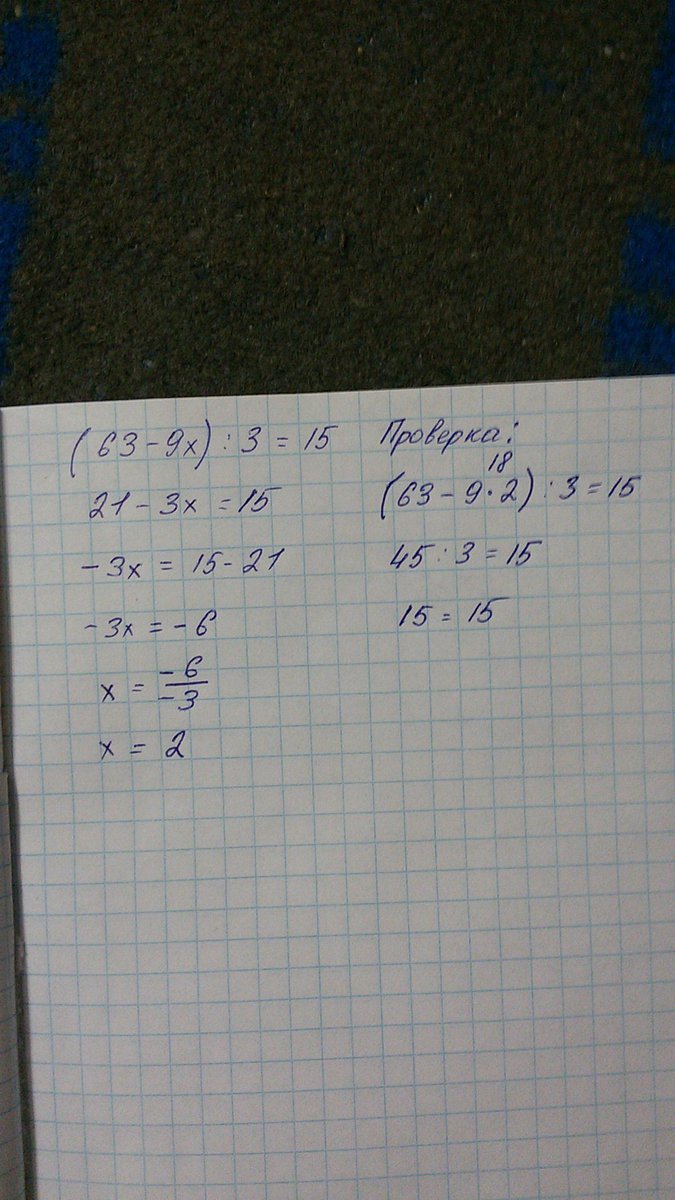 (63-9x):3=15
21-3x=15
-3x=15-21
-3x=-6
x=-6/-3
x=2
Проверка:
18
(63-9·2):3=15
45:3=15
15=15